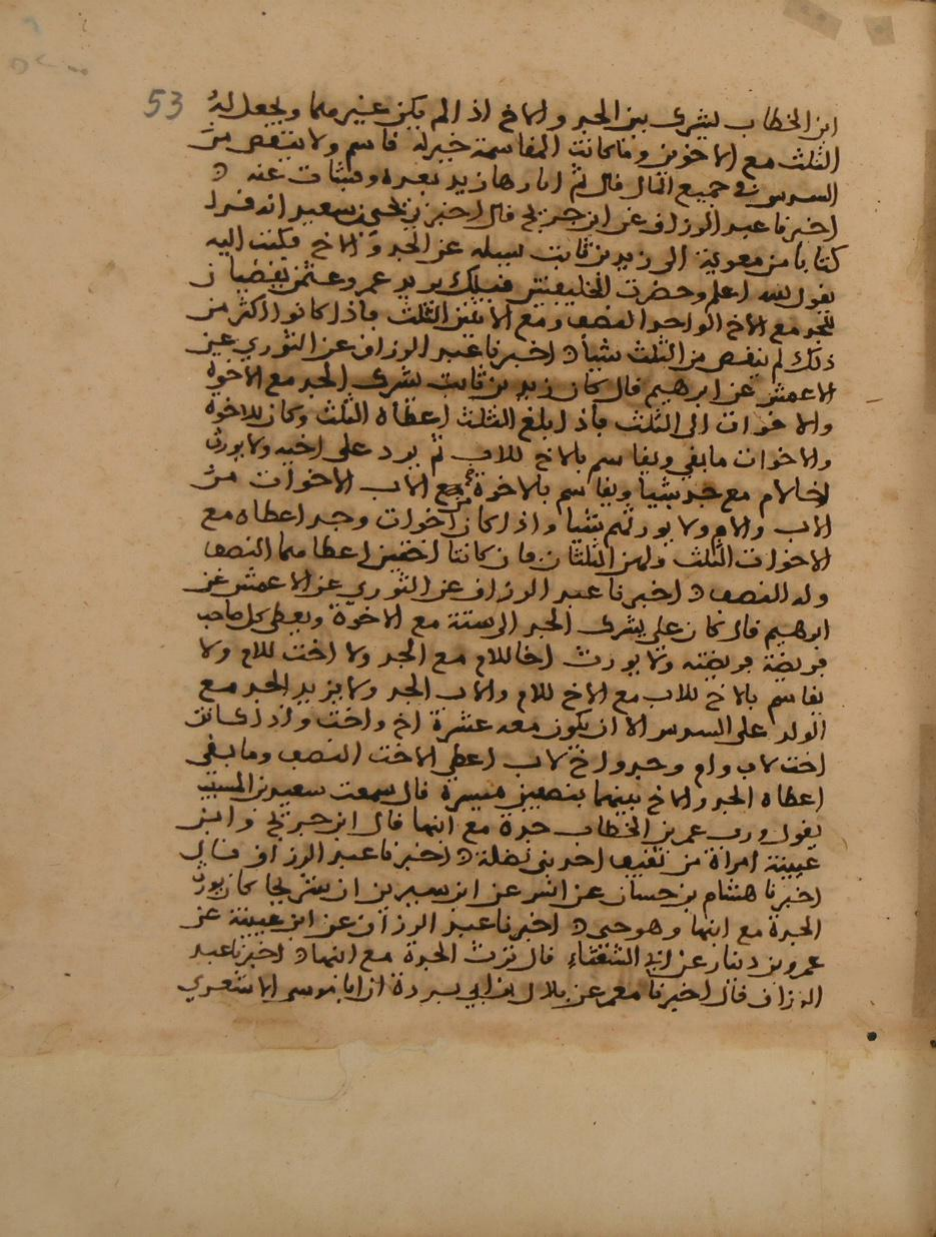 53
ابن الخطاب يشرك بين الجد والاخ اذا لم يكن غيرهما ويجعل له
الثلث مع الاخوين وما كانت المقاسمة خير له قاسم ولا ينتقص من
السدس في جميع المال قال ثم اثارها زيد بعده وفشات عنه
اخبرنا عبد الرزاق عن ابن جريج قال اخبرني يحيى بن سعيد انه قرا
كتابا من معوية الى زيد بن ثابت يسله عن الجد والاخ فكتب اليه
يقول الله اعلم وحضرت الخليفتين قبلك يريد عمر وعثمن يقضيان
للجد مع الاخ الواحد النصف ومع الاثنين الثلث فاذا كانوا اكثر من
ذلك لم ينقص من الثلث شيأ اخبرنا عبد الرزاق عن الثوري عن
الاعمش عن ابرهيم قال كان زيد بن ثابت يشرك الجد مع الاخوة
والاخوات الى الثلث فاذا بلغ الثلث اعطاه الثلث وكان للاخوة
والاخوات ما بقي ويقاسم بالاخ للاب ثم يرد على اخيه ولا يورث
اخا لام مع جد شيا ويقاسم بالاخوة من الاب الاخوات من
الاب والام ولا يورثهم شيا واذا كان اخوات وجد اعطاه مع
الاخوات الثلث ولهن الثلثان فان كانتا اختين اعطاهما النصف
وله النصف اخبرنا عبد الرزاق عن الثوري عن الاعمش عن
ابرهيم قال كان علي يشرك الجد الى ستة مع الاخوة ويعطي كل صاحب
فريضة فريضته ولا يورث اخا للام مع الجد ولا اخت للام ولا
يقاسم بالاخ للاب مع الاخ للام والاب الجد ولا يزيد الجد مع
الولد على السدس الا ان يكون معه عشرة اخ واخت واذا كانت
اخت لاب وام وجد واخ لاب اعطى الاخت النصف وما بقي
اعطاه الجد والاخ بينهما بنصفين ميسرة قال سمعت سعيد بن المسيب
يقول ورث عمر بن الخطاب جدة مع ابنها قال ابن جريج وابن
عيينة امراة من ثقيف احد بني نضلة اخبرنا عبد الرزاق قال
اخبرنا هشام بن حسان عن انس عن ابن سيرين ان شريحا كان يورث
الجدة مع ابنها وهو حي اخبرنا عبد الرزاق عن ابن عيينة عن
عمرو بن دينار عن ابي الشعثاء قال ترث الجدة مع ابنها اخبرنا عبد
الرزاق قال اخبرنا معمر عن بلال بن ابي بردة ان ابا موسى الاشعري